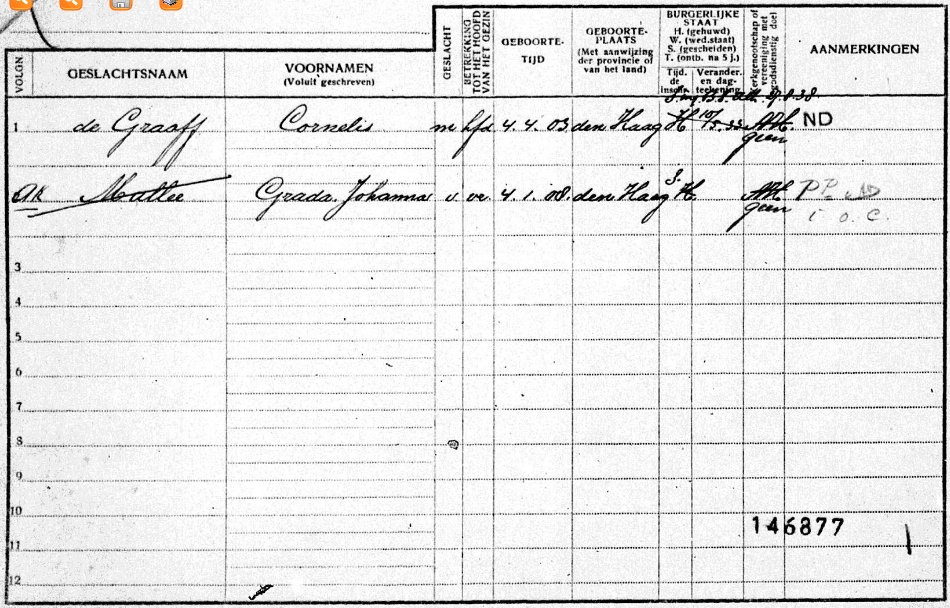 VOLGN.
GESLACHTSNAAM
VOORNAMEN
(Voluit geschreven)
GESLACHT
BETREKKING
TOT HET HOOFD
VAN HET GEZIN
GEBOORTE-
TIJD
GEBOORTE-
PLAATS
(Met aanwijzing
der provincie of
van het land)
BURGERLIJKE
STAAT
H. (gehuwd)
W. (wed.staat)
S. (gescheiden)
T. (ontb. na 5 j.)
Tijd.
de
inschr.
Verander.
en dag-
teekening
kerkgenootschap of
vereeniging met
godsdienstig doel
AANMERKINGEN
1 de Graaff Cornelis m hfd 4.4.03 den Haag H 10/5.33 NH. ND
geen
Mattee Grada Johanna v. vr. 4.1.08. den Haag H. NH
S.
geen
3
4
5
6
7
8
9
10
146877
11
12